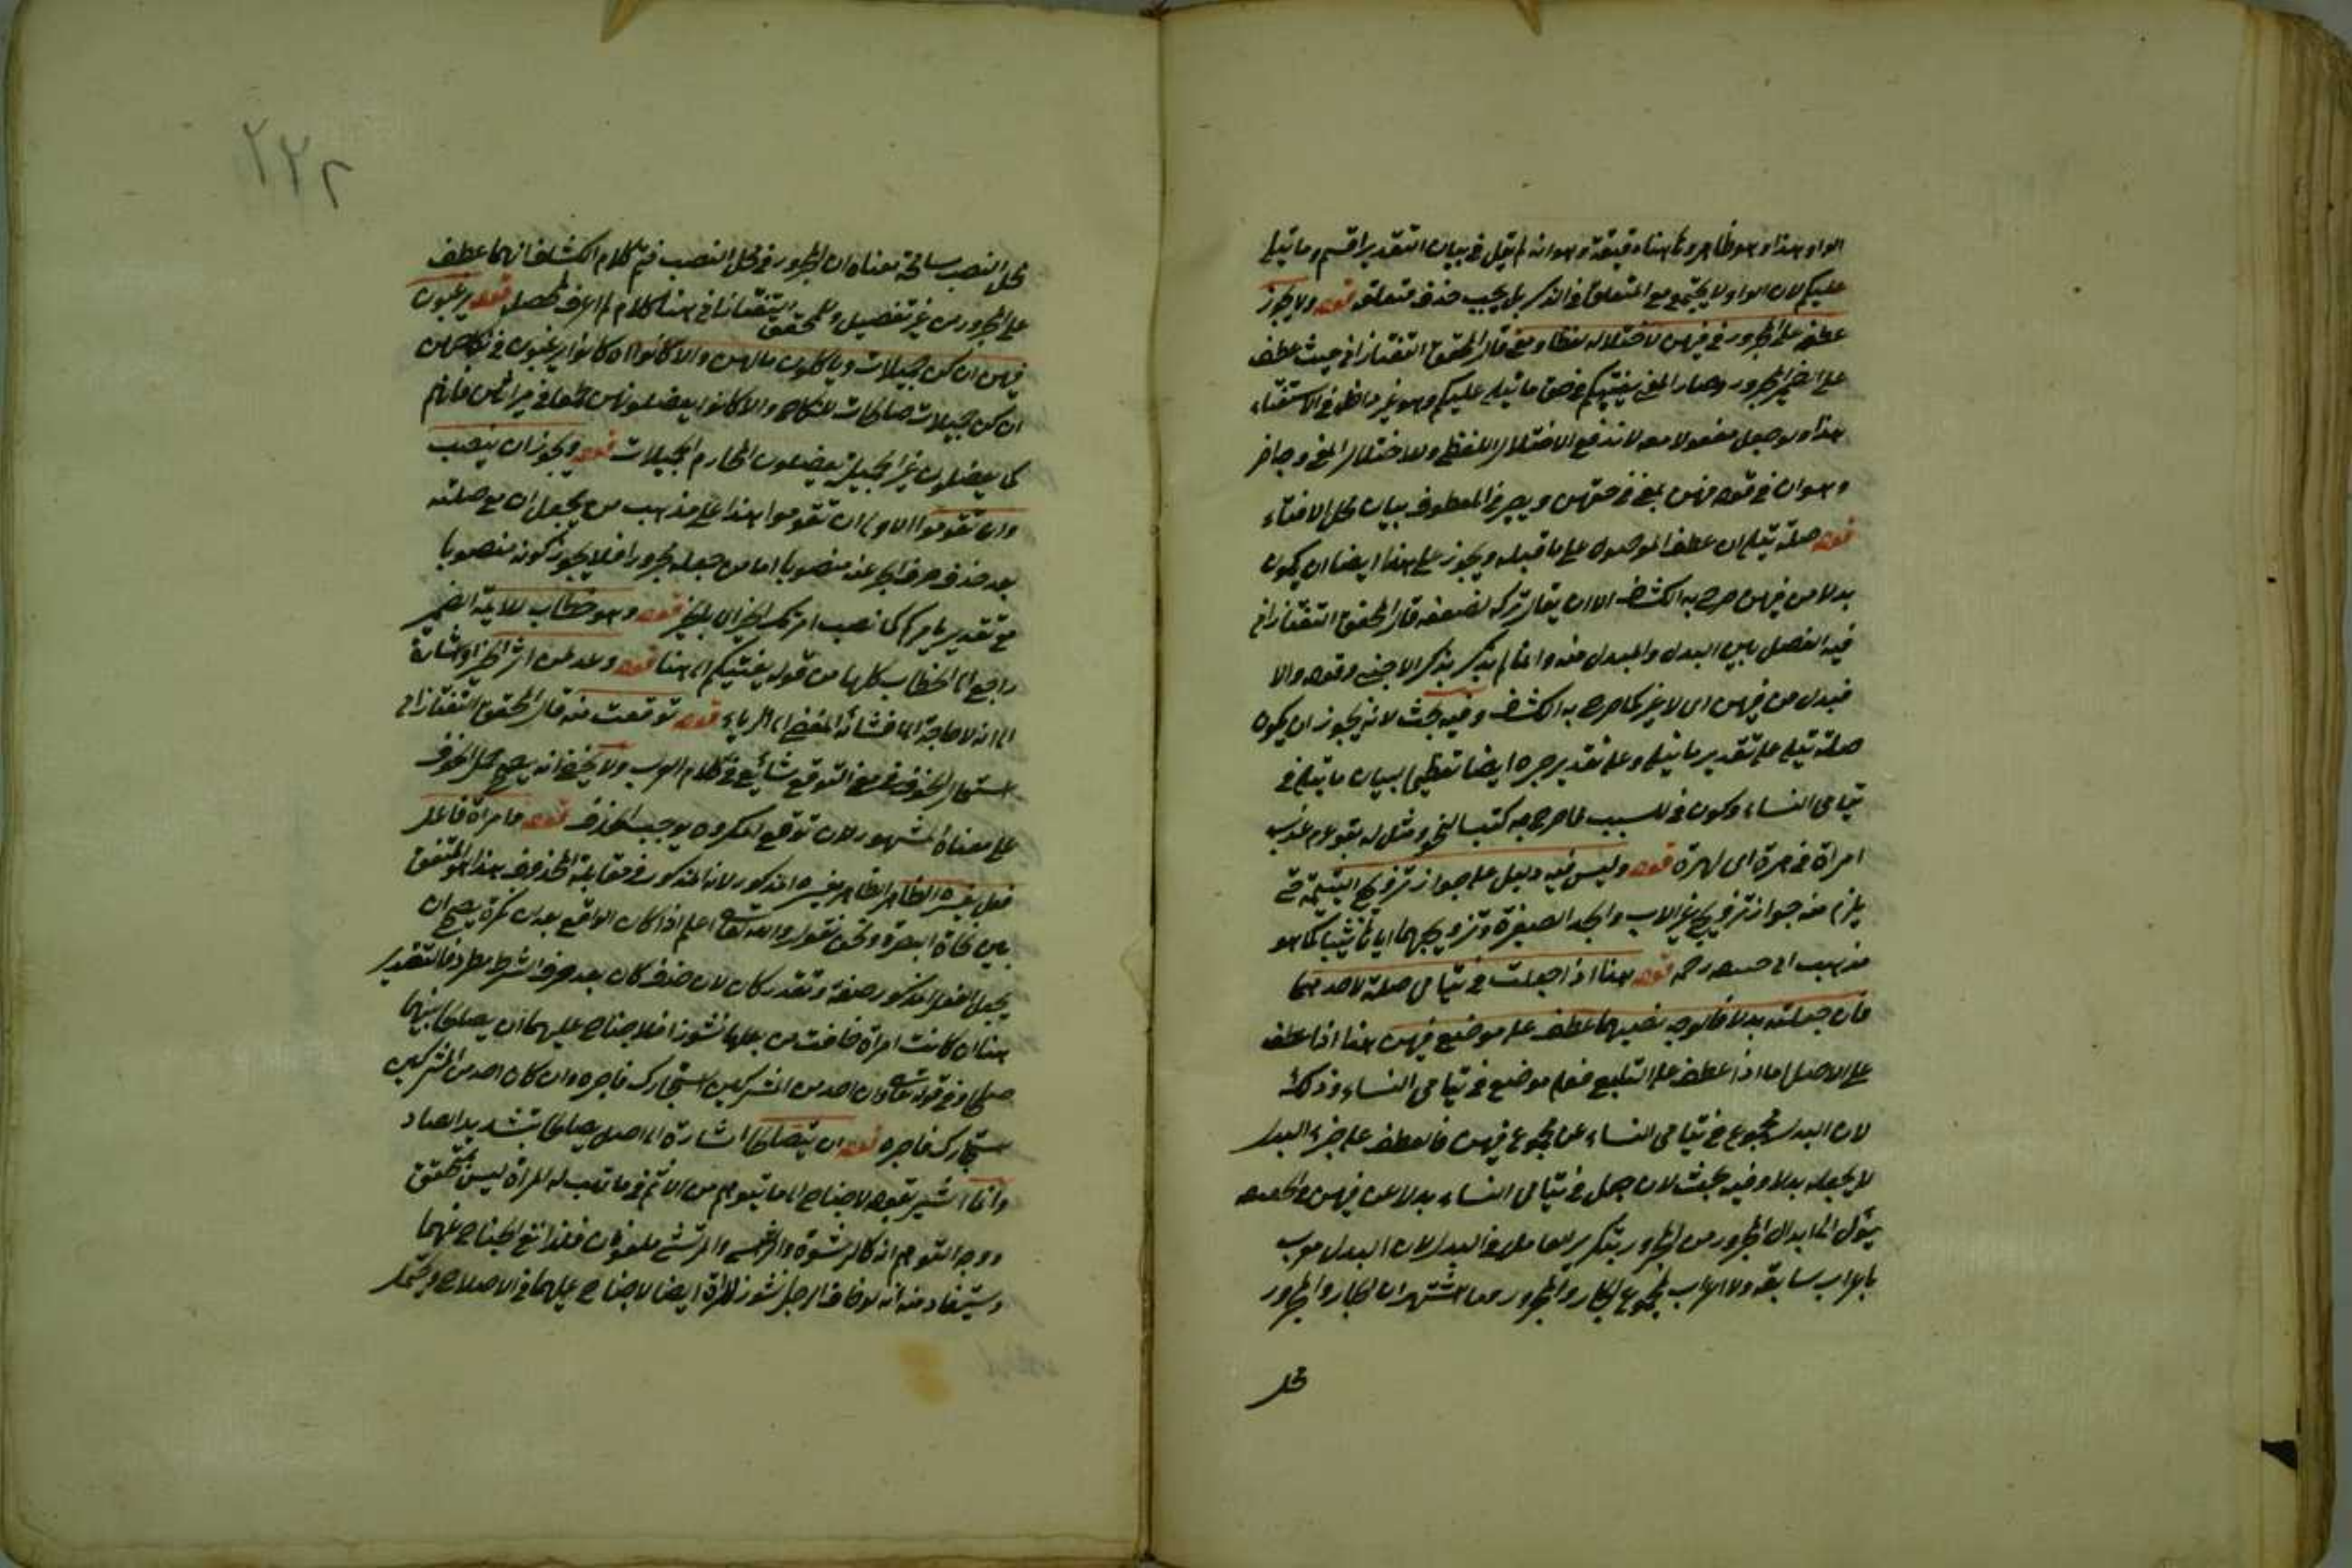 الواو هذا وهو ظاهر وثم هناه دقيقة وهو انه لم يقل في بيان التقدير اقسم وما يتلى
عليكم لان الواو لا يجتمع مع المتعلق في الذكر بل يجب حذف متعلقه قوله ولا يجوز
عطفه على المجرور في فيهن لاختلاله لفظا ومعنى قال المحقق التفتازاني حيث عطف
على الضمير المجرور وصار المعنى يفتيكم في حق ما يتلى عليكم وهو غير داخل في الاستفتاء
هذا ولو جعل مفعولا معه لاندفع الاختلال اللفظي ولاختلال المعنى وجه اخر
وهو ان في قوله فيهن بمعنى في حقهن ويصير في المعطوف بيان محل الافتاء
قوله صلة يتلى ان عطف الموصول على ما قبله ويجوز على هذا ايضا ان يكون
بدلا من فيهن صرح به الكشاف الا ان يقال تركه لضعفه قال المحقق التفتازاني
فيه الفصل بين البدل والمبدل منه وانما لم يذكر بذكر الاجنبي وقوله والا
فبدل من فيهن اى لا غير كما صرح به الكشاف وفيه بحث لانه يجوز ان يكون
صلة يتلى على تقدير ما يتلى وعلى تقدير جره ايضا تعظيما لبيان ما يتلى في
يتامى النساء وكون في للسبب مما صرح به كتب النحو ومثل له بقولهم عذبت
امرأة في هرة اى لهرة قوله وليس فيه دليل على جواز تزويج اليتيمة حتى
يلزم منه جواز تزويج غير الاب والجد الصغيرة وتزويجهما اياها ثيبا كما هو
مذهب ابى حنيفة رحمه قوله هذا اذا جعلت في يتامى صلة لاحدهما
فان جعلته بدلا فالوجه نصبهما عطفا على موضع فيهن هذا اذا عطف
على الاصل اما اذا عطف على التابع فعلى موضع في يتامى النساء وذلك
لان البدل مجموع في يتامى النساء عن مجموع فيهن فالعطف على جزء البدل
لا يجعله بدلا وفيه بحث لان جعل في يتامى النساء بدلا عن فيهن
يؤل الى ابدال المجرور من المجرور بتكرير العامل في البدل لان البدل معرب
باعراب سابقه ولا اعراب لمجموع الجار والمجرور وما اشتهر ان الجار والمجرور
محل
محل النصب مسامحة معناه ان المجرور في محل النصب فتم كلام الكشاف انهما عطف
على المجرور من غير تفصيل وللمحقق التفتازاني هنا كلام لم اعرف محصله قوله يرغبون
فيهن ان كن جميلات ويأكلون مالهن والا كانوا اه كانوا يرغبون في نكاحهن
ان كن جميلات صالحات للنكاح والا كانوا يعضلونهن طمعا في ميراثهن فانهم
كما يعضلون غير الجميلة يعضلون المحارم الجميلات قوله ويجوز ان ينصب
وان تقوموا الاولى ان تقوموا هذا على مذهب من يجعل ان مع صلته
بعد حذف حرف الجر عنه منصوبا اما من جعله مجرورا فلا يجوز كونه منصوبا
مع تقدير يأمركم كما نصب امرتك الخير اى بالخير قوله وهو خطاب للائمة الضمير
راجع الى الخطاب كلها من قوله يفتيكم الى هنا قوله وعد لمن اثر الخير اشارة
الى انه لا حاجة الى افشائه المفضى الى الرياء قوله توقعت منه قال المحقق التفتازاني
استعمال الخوف في معنى التوقع شائع في كلام العرب ولا يخفى انه يصح حمل الخوف
على معناه المشهور لان توقع المكروه يوجب الخوف قوله وامرأة فاعل
فعل يفسره الظاهر الظاهر يفسره المذكور لان المذكور في مقابلة المحذوف هذا هو المتفق
بين نحاة البصرة ونحن نقول والله تعالى اعلم اذا كان الواقع بعد ان نكرة يصح ان
يجعل الفعل المذكور صفة وتقدر كان لان حذف كان بعد حرف الشرط مطرد فالتقدير
هنا ان كانت امرأة خافت من بعلها نشوزا فلا جناح عليهما ان يصلحا بينهما
صلحا وفي قوله تعالى وان احد من المشركين استجارك فاجره وان كان احد من المشركين
استجارك فاجره قوله ان يتصالحا اشارة الى اصل يصالحا بتشديد الصاد
وانما اشير بقوله لا جناح الى ما يتوهم من الاثم في ما تهب له المرأة ليس بمتحقق
ووجه التوهم انه كالرشوة والراشى والمرتشى ملعونان فلذا نفى الجناح عنهما
ويستفاد منه انه لو خاف الرجل نشوز المرأة ايضا لا جناح عليهما في الاصلاح ويحتمل